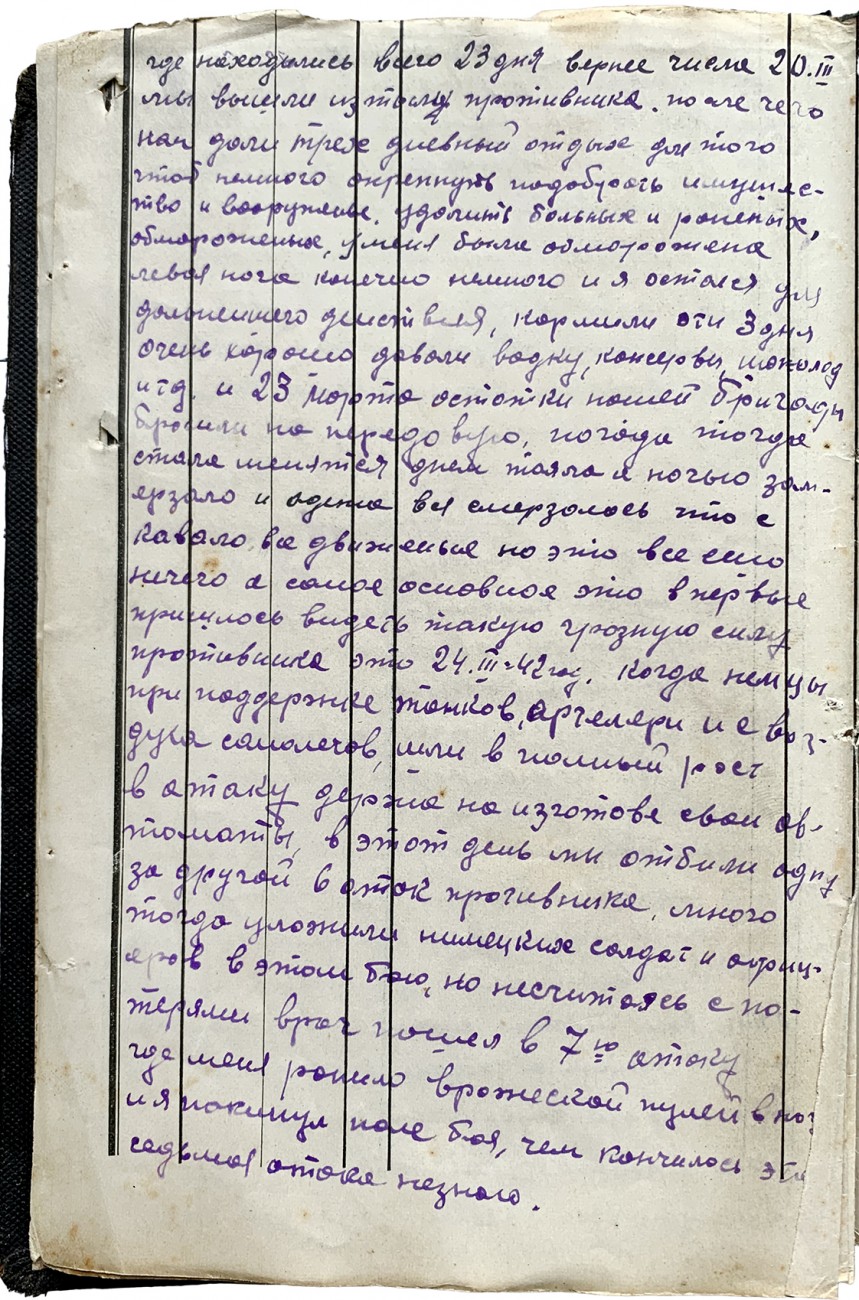 где находились всего 23 дня вернее числа 20.III
мы вышли из тыла противника. после чего
нам дали трех дневный отдых для того
чтоб немного окрепнуть подобрать имущес-
тво и вооружение. удалить больных и раненых,
обмороженых, у меня была обморожена
левая нога конечно немного и я остался для
дальнейшего действия, кормили эти 3 дня
очень хорошо давали водку, консервы, шоколад
итд. и 23 марта остатки нашей бригады
бросили на передовую, погода тогда
стала менятся днем таяла а ночью зам-
ерзало и одежа вся смерзалось что с
кавало все движенье но это все еще
ничего а самое основное это впервые
пришлось видеть такую грозную силу
противника это 24.III-42 год. когда немцы
при поддержке танков, артелери и с воз-
духа самолетов, шли в полный рост
в атаку держа на изготове свои ав-
томаты, в этот день мы отбили одну
за другой 6 атак противника, много
тогда уложили нимецких солдат и офиц-
еров в этом бою, но несчитаясь с по-
терями враг пошел в 7ю атаку
где меня ранило вражеской пулей в ног
и я покинул поле боя, чем кончилось эта
седьмая атака незнаю.